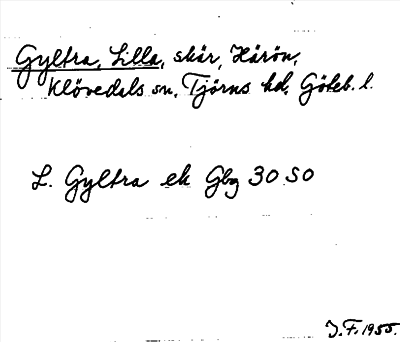 Gyltra, Lilla, skär, Härön,
Klövedals sn, Tjörns hd, Göteb. l.
L. Gyltra ek Gbg 30 SO
J.F. 1955.